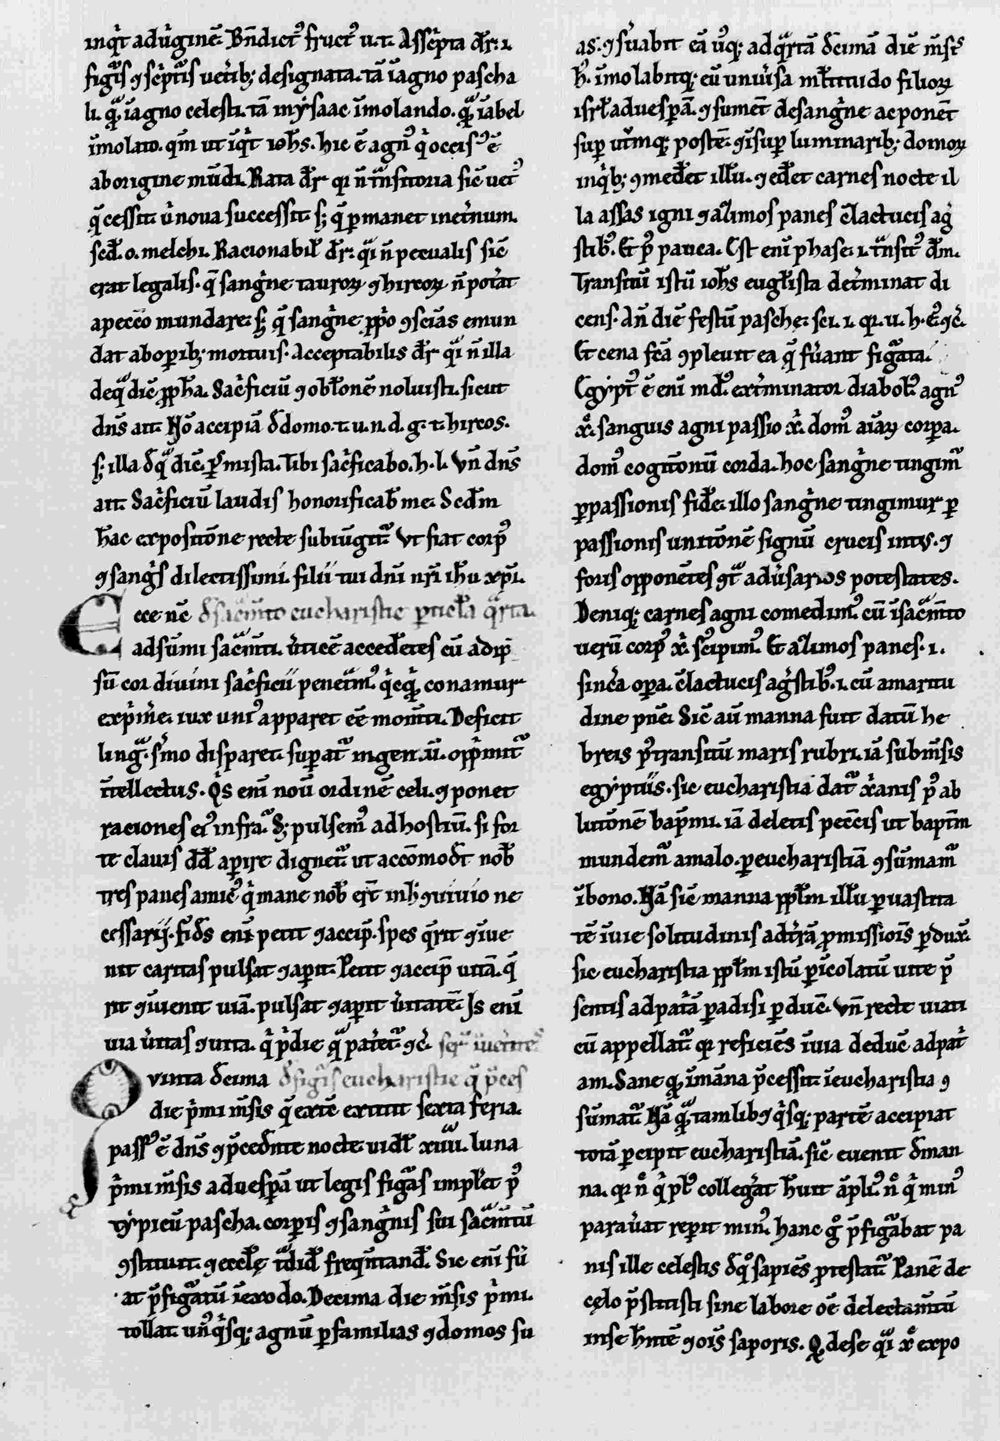 inq̄t ad uirginē. Bn̄dict᷒ fruct᷒ u.t. Ascripta dr̄. i.
figuris ⁊ scriptis ueterib; designata. tā ī agno pascha
li. qͣ ī agno celesti. tā in ysaac īmolando. qͣ ī abel
īmolato. qm̄ ut īq̄t ioh̄s. hic ē agn᷒ q̇ occis᷒ ē
ab origine mūdi. Rata dr̄ q n̄ trāsitoria sic̄ uet᷒
cessit
sed. o. melchi. Racionabil̄ dr̄. qi n̄ pecualis sic̄
erat legalis. q̄ sangīne tauroꝝ ⁊ hircoꝝ n̄ potat
a peccō mundare. s; q̄ sangīne ꝓpo ⁊sciās emun
dat ab opib; mortuis. acceptabilis dr̄ qi n̄ illa
de qͣ dic̄ ꝓph̄a. Sacficiū ⁊ oblōnē noluisti. sicut
dn̄s ait. Nō accipiā ꝺ domo. t. u. n. d. g. t. hircos.
s; illa ꝺ qͣ dic̄. ꝓmissa. Tibi sacficabo. h. l. Vn̄ dn̄s
ait. Sacficiū laudis honorificab̄ me. Scdm̄
hāc expositōne recte subiūgit᷑. Vt fiat corp᷒
⁊ sangīs dilectissimi filii tui dn̄i nr̄i ih̄u xp̄i.
Ecce nc̄ ꝺ sacm̄to eucharistie pticl̄a qͣrta.
ad sūmi sacm̄ti. uticē accedētes cū adip
sū cor diuini sacficii penetm᷒. qcq̨ conamur
exp̄me. iux uni᷒ apparet eē mom̄ti. Deficit
lingͣ. s̄mo disparet. supat᷑ ingen.ū. opp̄mit᷑
ītellectus. Qͥs enī nou ordinē celi. ⁊ ponet
raciones ei᷒ in fra. S; pulsem᷒ ad hostiū. si for
te clauis dd̄ apire dignet᷑ ut accōmodꝫ nob̄
tres panes amic᷒ q̇ mane nob̄ ert̄ inh̄ ⁊uiuio ne
cessarij. fid̄s enī petit ⁊ accip̄. spes q̄rit ⁊ īue
nit caritas pulsat ⁊ apit. Petit ⁊ accip̄ uitā. q̄
rit ⁊ īuenit uiā. pulsat ⁊ apit ūitatē. Is enī
uia ūitas ⁊ uita. q̇ pͥdie qͣ patet᷑
Quinta decima ꝺ figīs eucharistie q̄ p̄ces
die pͥmi m̄sis q̄ exīte exiuit sexta feria.
pass᷒ ē dn̄s ⁊ p̄cedn̄te nocte uidl̄ xiiii. luna
pͥmi m̄sis ad uespā ut legis figͣs impl̄et p᷒
typicū pascha. corpis ⁊ sangīnis sui sacm̄tū
⁊stituit. ⁊ eccl̄ę tͣdid̄ freqn̄tand̄. Sic enī fū
at p̄figatū ī exodo. Decima die m̄sis pͥmi.
tollat un᷒q̇sq; agnū p familias ⁊ domos su
as. ⁊ ꝼuabit eā usq; ad qͣrtā decimā diē m̄sis
h᷒. īmolabitq; eū uniūsa mltitudo filioꝝ
isrl̄ ad uespā. ⁊ sumēt de sangīne ac ponēt
sup utrumq; postē. ⁊ ī sup luminarib; domoꝝ
in qͥb; ⁊medēt illū. ⁊ edēt carnes nocte il
la assas igni ⁊ azimos panes c̄ lactucis ag
stib᷒. Et p᷒ pauca. Est enī phase. i. trāsit᷒ dn̄i.
Transitū istū ioh̄s eugl̄ista detminat di
cens. An̄ diē festū pasche. sci. i. q. u. h. e᷒. ⁊c̄.
Et cena fcā ⁊pleuit ea q̄ fūant figata.
Egypt᷒ ē enī md᷒. extminator diabol᷒. agn᷒
xͦ. sanguis agni passio xͥ. dom᷒ aīaꝝ corpa.
dom᷒ cogitōnū corda. hoc sangīne tingim᷒
p passionis fidē. illo sangīne tingimur p
passionis unitōnē signū crucis intus. ⁊
foris opponētes ⁊tͣ adūsarios potestates.
Deniq; carnes agni comedim᷒ cū ī sacm̄to
uerū corp᷒ xͥ scipim᷒. Et azimos panes. i.
sincā opa. c̄ lactucis agͥstib᷒. i. cū amaritu
dine pn̄ie. Sic̄ aū manna fuit datū he
breis p᷒ transitū maris rubri. iā submsis
egyptiis. sic eucharistia dat᷑ xͥanis p᷒ ab
lutōnē bapmi. iā deletis peccīs ut baptm̄
mundem᷒ a malo. p eucharistiā ⁊sūmam᷒
ī bono. Nā sic̄ manna ppl̄m illū p uastita
tē īuie solitudinis ad t̄rā ꝓmissiōis pduxͥ.
sic eucharistia ppl̄m istū picolatū uite p̄
sentis ad patͥā padisi pducͥ. Vn̄ recte uiati
cū appellat᷑ q reficiēs ī uia deducͥ ad patͥ
am. Sane q̨ ī māna p̄cessit ī eucharistia ⁊
sūmat᷑. Nā qͣtamlib᷒ ⁊ qͥsq; partē accipiat
totā pcipit eucharistiā. sic̄ euenit ꝺ man
na. q nͦ q̇ pl᷒ collegat huit ampli᷒. nͦ q̇ min᷒
parauat repit min᷒. hanc gͦ p̄figabat pa
nis ille celestis ꝺ qͦ sapiēs ꝓtestat᷑. Panē de
cęlo p̄stitisti sine labore oē delectamtū
in se hn̄tē ⁊ oīs saporis. Q̨ de se qi xͦ expo